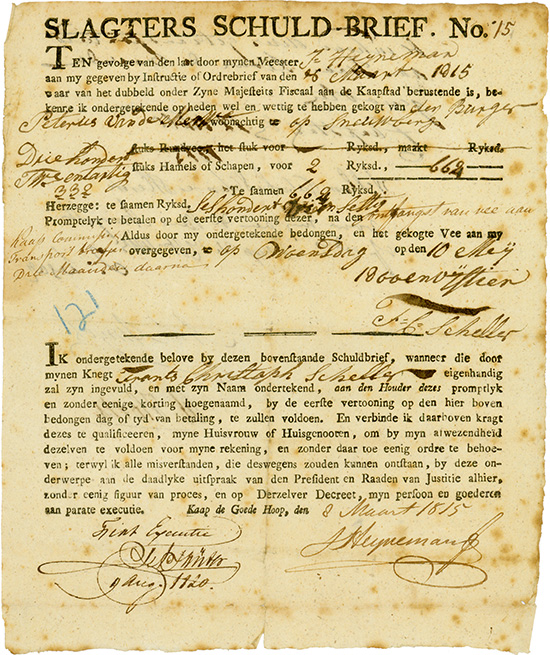 SLAGTERS SCHULD-BRIEF. No. 15
TEN gevolge van den last door mynen Meester J: Heyneman
aan my gegeven by Instructie of Ordrebrief van den 8 Maart 1815
waar van het dubbeld onder Zyne Majesteits Fiscaal aan de Kaapstad berustende is, be-
kenne ik ondergetekende op heden wel en wettig te hebben gekogt van den Burger
Petrus van der woonachtig op
stuks Runderen het stuk voor Ryksd., maakt Ryksd.
Driehondert
stuks Hamels of Schapen, voor 2 Ryksd., 662
Tweendertig
332
Te saamen 662 Ryksd.
Herzegge: te saamen Ryksd. Seshondert
Promptelyk te betalen op de eerste vertooning dezer, na den ontfangst van vee aan
Kaap
Aldus door my ondergetekende bedongen, en het gekogte Vee aan my
Transport
overgegeven, op Woensdag op den 10 Meij
Drie Maanden daarna
18 ovenvijftien
121
F: C: Scheller
IK ondergetekende belove by dezen bovenstaande Schuldbrief, wanneer die door
mynen Knegt Frantz Christoph Scheller eigenhandig
zal zyn ingevuld, en met zyn Naam ondertekend, aan den Houder dezes promptlyk
en zonder eenige korting hoegenaamd, by de eerste vertooning op den hier boven
bedongen dag of tyd van betaling, te zullen voldoen. En verbinde ik daarboven kragt
dezes te qualificeeren, myne Huisvrouw of Huisgenooten, om by myn afwezendheid
dezelven te voldoen voor myne rekening, en zonder daar toe eenig ordre te behoe-
ven; terwyl ik alle misverstanden, die deswegens zouden kunnen ontstaan, by deze on-
derwerpe aan de daadlyke uitspraak van den President en Raaden van Justitie alhier,
zonder eenig figuur van proces, en op Derzelver Decreet, myn persoon en goederen
aan parate executie. Kaap de Goede Hoop, den 8 Maart 1815
Fiat Executie
J Heyneman
9 Aug. 1820.